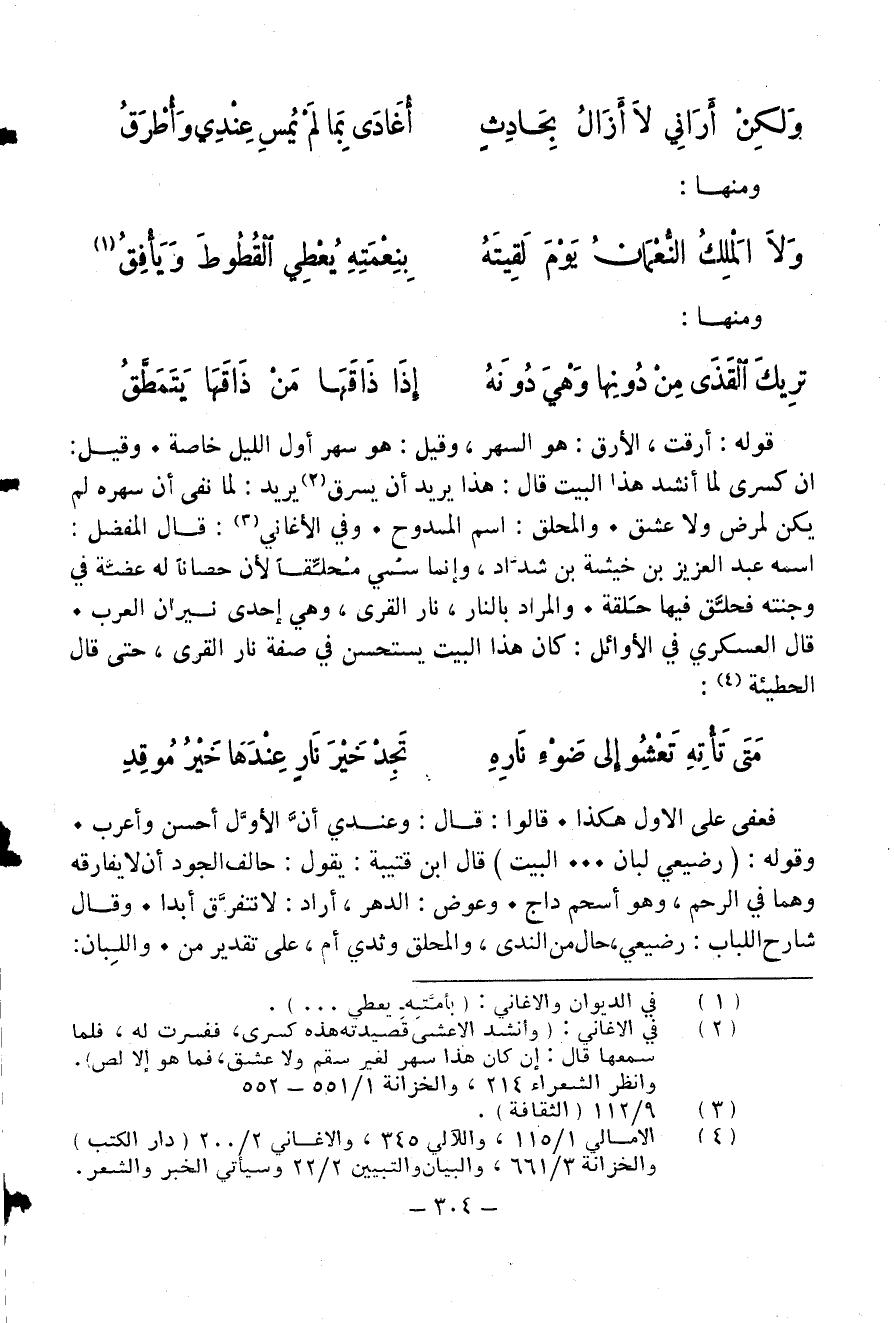 وَلَكِنْ أَرَانِي لاَ أَزَالُ بِحَادِثٍ أُغَادَى بِمَا لَمْ يُمْسِ عِنْدِي وَأُطْرَقُ
ومنهـا :
وَلاَ الْمَلِكُ النُّعْمَانُ يَوْمَ لَقِيتَهُ بِنِعْمَتِهِ يُعْطِي الْقُطُوطَ وَيَأْفِقُ (١)
ومنهـا :
تَرِيكَ الْقَذَى مِنْ دُونِهَا وَهْيَ دُونَهُ إِذَا ذَاقَهَا مَنْ ذَاقَهَا يَتَمَطَّقُ
قوله : أرقت ، الأرق : هو السهر ، وقيل : هو سهر أول الليل خاصة ٠ وقيـل :
ان كسرى لما أنشد هذا البيت قال : هذا يريد أن يسرق(٢) يريد : لما نفى أن سهره لم
يكن لمرض ولا عشق ٠ والمحلق : اسم الممدوح ٠ وفي الأغاني(٣) : قـال المفضل :
اسمه عبد العزيز بن خيثمة بن شدَّاد ، وإنما سُمي مُحلَّقـاً لأن حصاناً له عضَّة في
وجنته فحلَّق فيها حَلقة ٠ والمراد بالنار ، نار القرى ، وهي إحدى نـيران العرب ٠
قال العسكري في الأوائل : كان هذا البيت يستحسن في صفة نار القرى ، حتى قال
الحطيئة (٤) :
مَتَى تَأْتِهِ تَعْشُو إِلى ضَوْءِ نَارِهِ تَجِدْ خَيْرَ نَارٍ عِنْدَهَا خَيْرُ مُوقِدِ
فعفى على الاول هكذا ٠ قالوا : قـال : وعنـدي أنَّ الأوَّل أحسن وأعرب ٠
وقوله : ( رضيعي لبان ٠٠٠ البيت ) قال ابن قتيبة : يقول : حالف الجود أن لا يفارقه
وهما في الرحم ، وهو أسحم داج ٠ وعوض : الدهر ، أراد : لا نتفرَّق أبدا ٠ وقـال
شارح اللباب : رضيعي ، حال من الندى ، والمحلق وثدي أم ، على تقدير من ٠ واللِبان :
( ١ ) في الديوان والاغاني : ( بأمَّتِهِ يعطي ... ) .
( ٢ ) في الاغاني : ( وأنشد الاعشى قصيدته هذه كسرى ، ففسرت له ، فلما
سمعها قال : إن كان هذا سهر لغير سقم ولا عشق ، فما هو إلا لص ) .
وانظر الشعراء ٢١٤ ، والخزانة ٥٥١/١ – ٥٥٢
( ٣ ) ١١٢/٩ ( الثقافة ) .
( ٤ ) الامـالي ١١٥/١ ، واللآلي ٣٤٥ ، والاغـاني ٢٠٠/٢ ( دار الكتب )
والخزانة ٦٦١/٣ ، والبيان والتبيين ٢٢/٢ وسيأتي الخبر والشعر .
– ٣٠٤ –